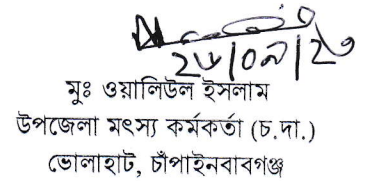 মুঃ ওয়ালিউল ইসলাম
উপজেলা মৎস্য কর্মকর্তা (চ.দা.)
ভোলাহাট, চাঁপাইনবাবগঞ্জ